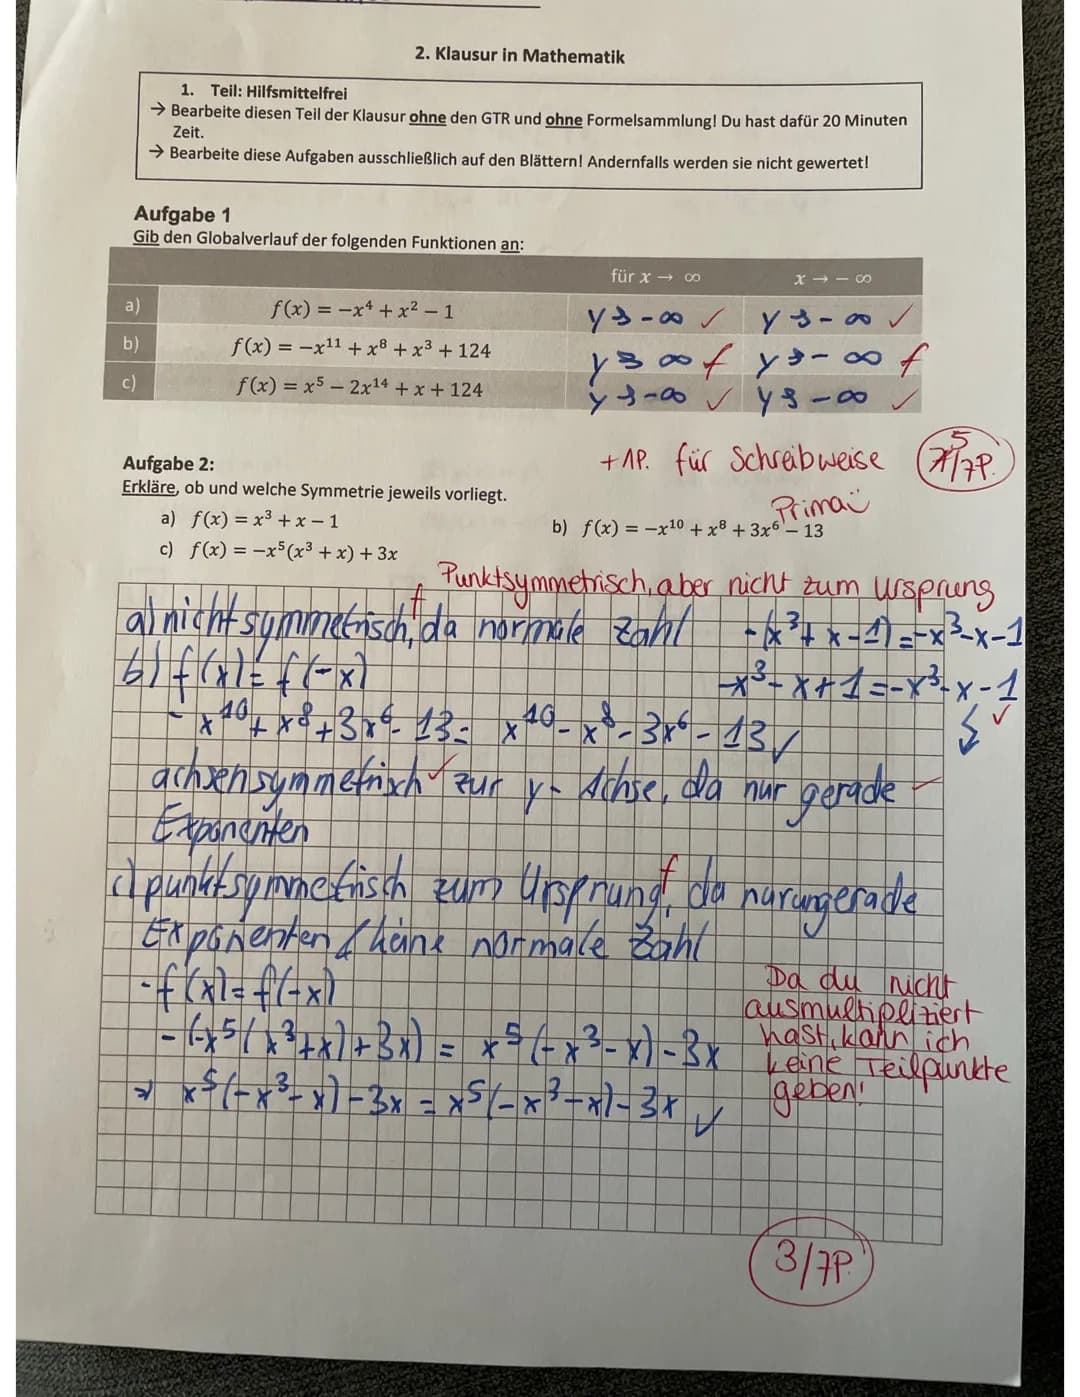 2. Klausur in Mathematik
1. Teil: Hilfsmittelfrei
→ Bearbeite diesen Teil der Klausur ohne den GTR und ohne Formelsammlung! Du hast dafür 20 Minuten
Zeit.
→ Bearbeite diese Aufgaben ausschließlich auf den Blättern! Andernfalls werden sie nicht gewertet!
Aufgabe 1
Gib den Globalverlauf der folgenden Funktionen an:
für x → ∞ x → − ∞
a) f(x) = −x⁴ + x² − 1 y → -∞ ✓ y → -∞ ✓
b) f(x) = −x¹¹ + x⁸ + x³ + 124 y → ∞ f y → -∞ f
c) f(x) = x⁵ − 2x¹⁴ + x + 124 y → -∞ ✓ y → -∞ ✓
+1P. für Schreibweise 5/7P.
Prima
Aufgabe 2:
Erkläre, ob und welche Symmetrie jeweils vorliegt.
a) f(x) = x³ + x − 1 b) f(x) = −x¹⁰ + x⁸ + 3x⁶ − 13
c) f(x) = −x⁵(x³ + x) + 3x
Punktsymmetrisch, aber nicht zum Ursprung
a) nicht symmetrisch, f da normale Zahl -(x³+x-1)=-x³-x-1
b) f(x)=f(-x) -x³-x+1=-x³-x-1
-x¹⁰+x⁸+3x⁶-13= x¹⁰-x⁸-3x⁶-13 ✓ ✓
achsensymmetrisch ✓ zur y-Achse, da nur gerade
Exponenten
c) punktsymmetrisch zum Ursprung, f da nur ungerade
Exponenten / keine normale Zahl
-f(x)=f(-x)
-(-x⁵(x³+x)+3x) = x⁵(-x³-x)-3x
⇒ x⁵(-x³-x)-3x = x⁵(-x³-x)-3x ✓
Da du nicht
ausmultipliziert
hast, kann ich
keine Teilpunkte
geben!
3/7P.